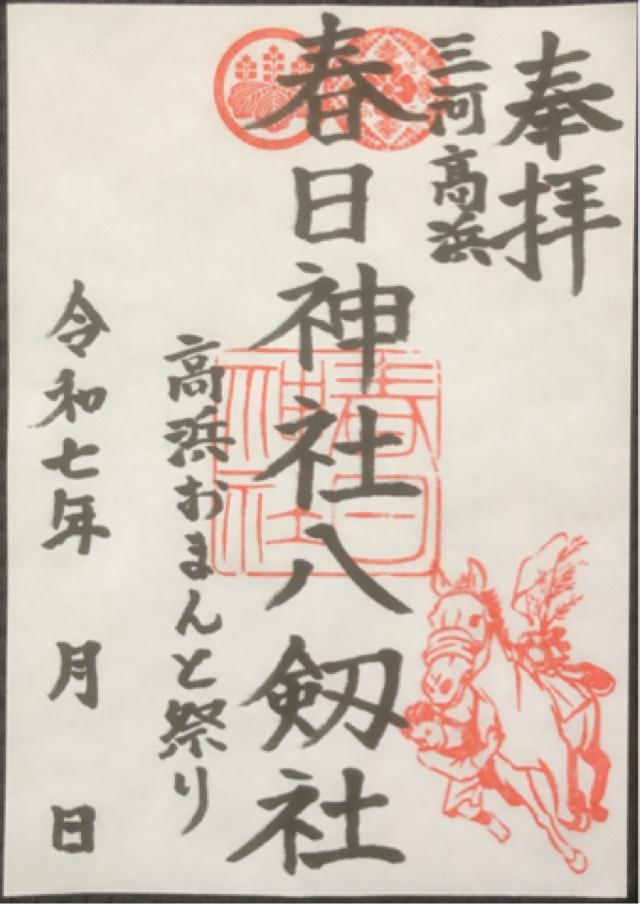 奉拝
三河高浜
春日神社八剱社
春日神社
高浜おまんと祭り
令和七年 月 日